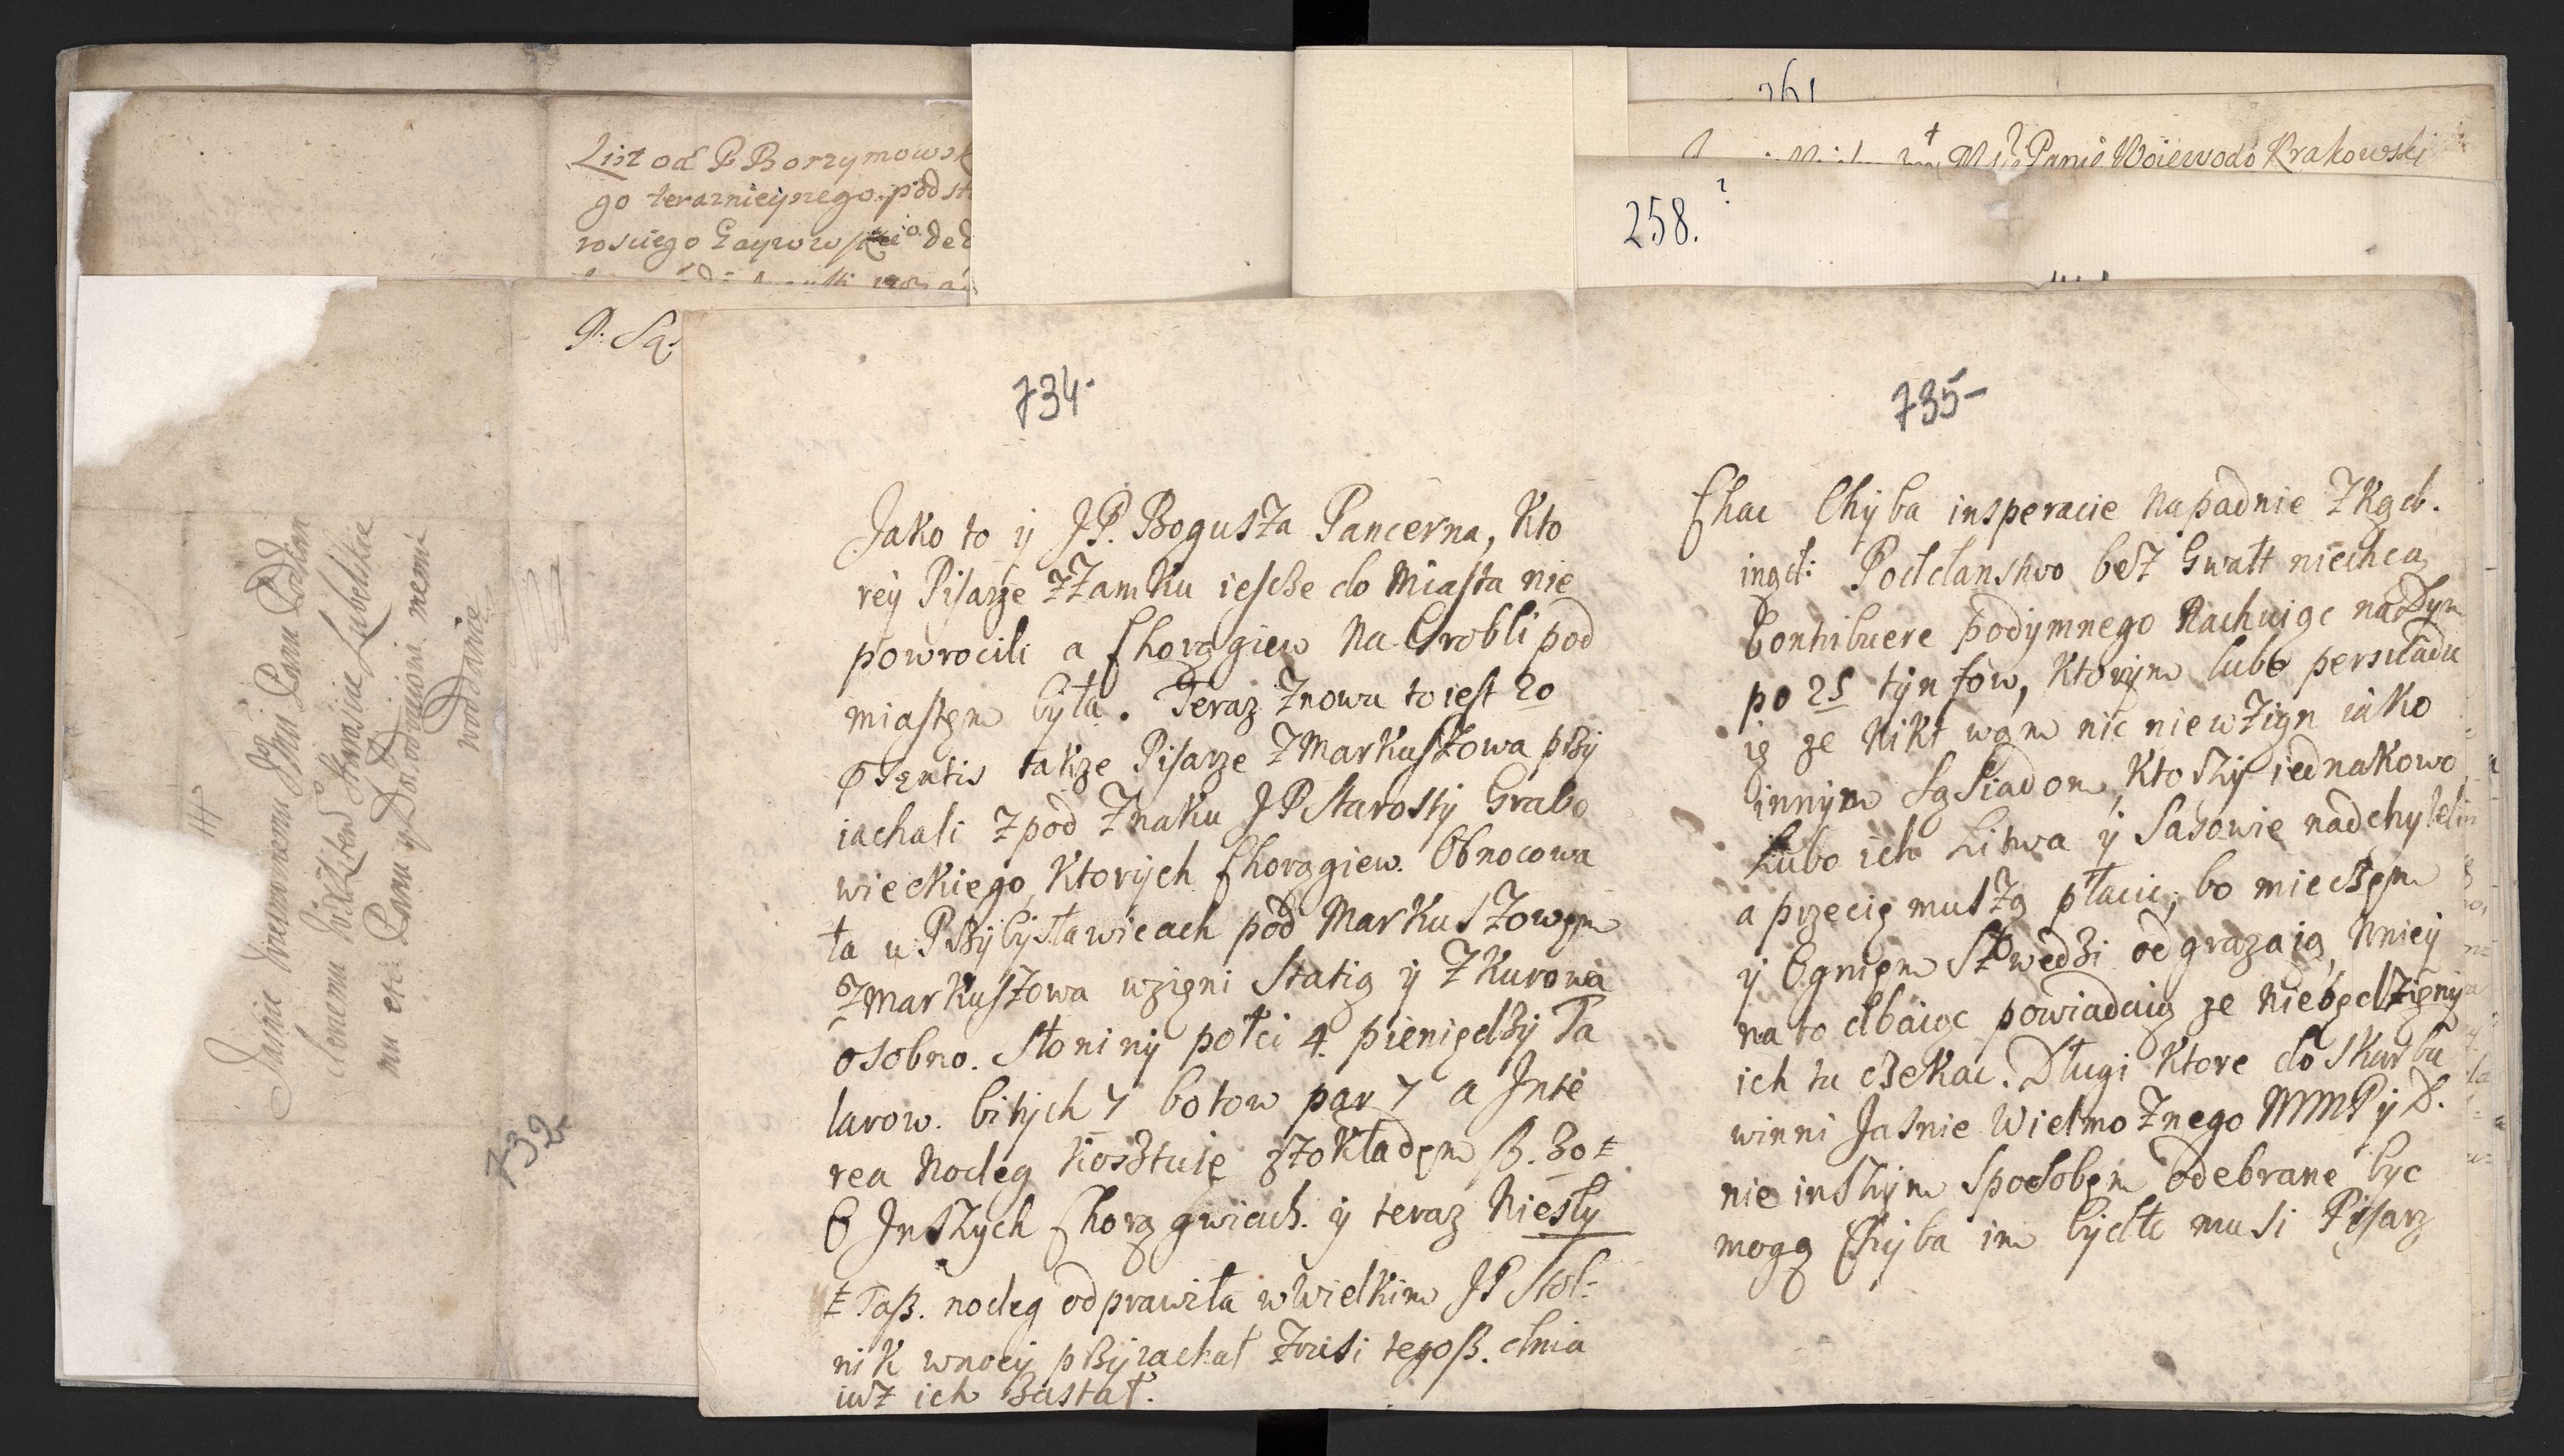 List od P Borzymowsk
go terazniejszego podst
rosciego Gayowskie° ded
P: Są:
261
Panie Woiewodo Krakowski
258. ?
Jasnie Wielmoznemu Jmci Panu Podkom
clonemu
Starosicie Lubelskie
mu etc: Panu y Dobrodzieiowi memu
woddanie
732-
734-
Jako to ÿ JP. Bogusza Pancerna, Kto
reÿ Pisarze z Zamku iescze do Miasta nie
powrocili a Chorągiew Na Grobli pod
miastęm była. Teraz Znowu to iest 20
Pszętis takze Pisarze z Markuszowa pszÿ
iachali z pod Znaku JP Starostÿ Grabo
wieckiego, Ktorÿch Chorągiew. Obnocowa
ła u Pszÿbÿsławicach pod Markuszowęm
z Markuszowa wzięni Statią ÿ z Kurowa
osobno. Słoninÿ połci 4. pieniędzÿ Ta
larow. bitÿch 7 botow par 7 a Inte
rea Nocleg Kosztuię z tokładęm fl. 30 ‡
O Inszÿch Chorągwiach. ÿ teraz Niesły
‡ Taß. nocleg odprawiła w Wielkim JP Stol-
nik wnocÿ pszÿiachał Zrusi tegoß. dnia
iusz ich Zastał.
735-
Chac Chÿba insperacie Napadnie z Kąd.
ingd: Poddanstwo besz Gwałt niechcą
Contribuere podymnego Rachuiąc na Dym
po 25 tÿnfow, Ktorÿm lubo persuadu
ię ze Nikt wam nic nie wziąn iako
innÿm Sąsiadom, Ktoszÿ iednakowo
Lubo ich Litwa ÿ Sasowie nadchyleli
a przecię muszą płacic, bo mieczęm
ÿ Ogniem Szwedzi odgrazaią, Mnieÿ
na to dbaiąc powiadaią ze Niebędzięnÿ
ich tu czekac. Długi Ktore do Skarbu
winni Jasnie Wielmoznego MMP ÿ D.
nie inszÿm Sposobęm odebrane bÿc
mogą Chÿba im bÿdło musi Pisarz